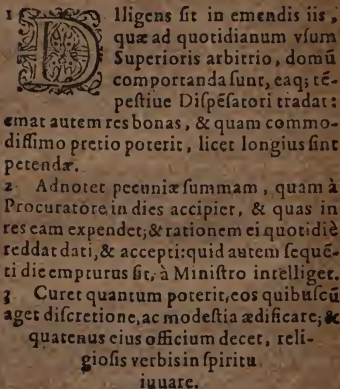 1 DIligens ſit in emendis iis,
quæ ad quotidianum vſum
Superioris arbitrio, domū
comportanda ſunt, eaq; tē-
peſtiue Diſpēſatori tradat:
emat autem res bonas, & quam commo-
diſſimo pretio poterit, licet longius ſint
petendæ.
2 Adnotet pecuniæ ſummam, quam à
Procuratore in dies accipiet, & quas in
res eam expendet; & rationem ei quotidiè
reddat dati, & accepti: quid autem ſequē-
ti die empturus ſit, à Miniſtro intelliget.
3 Curet quantum poterit, eos quibuſcū
aget diſcretione, ac modeſtia ædificare; &
quatenus eius officium decet, reli-
gioſis verbis in ſpiritu
iuuare.